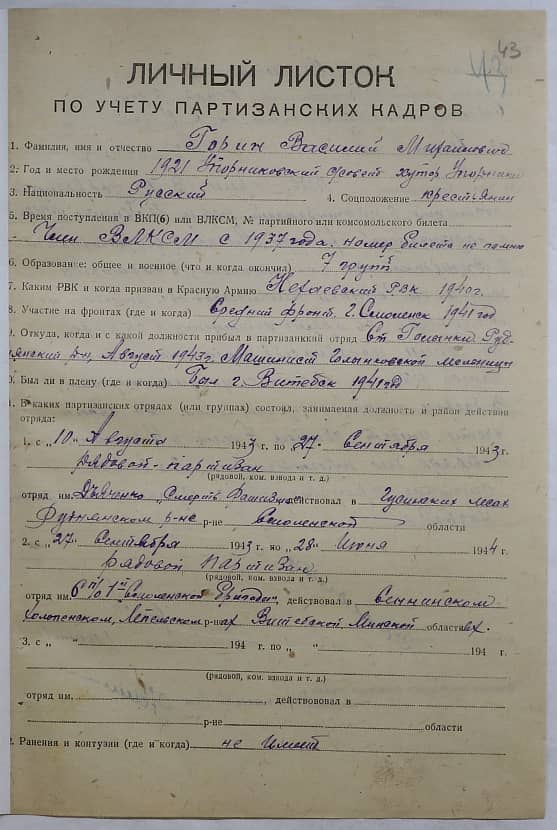 43
43
ЛИЧНЫЙ ЛИСТОК
ПО УЧЕТУ ПАРТИЗАНСКИХ КАДРОВ
1. Фамилия, имя и отчество Горин Василий Михайлович
2. Год и место рождения 1921 Упорниковский с/совет хутор Упорники
3. Национальность Русский 4. Соцположение крестьянин
5. Время поступления в ВКП(б) или ВЛКСМ, № партийного или комсомольского билета
Член ВЛКСМ с 1937 года. номер билета не помню
6. Образование: общее и военное (что и когда окончил) 7 групп
7. Каким РВК и когда призван в Красную Армию Нехаевский РВК 1940 г.
8. Участие на фронтах (где и когда) Средний фронт г. Смоленск 1941 год
9. Откуда, когда и с какой должности прибыл в партизанкий отряд ст. Голынки Руд-
нянский р-н, Август 1943 г. Машинист Голынковской мельницы
0. Был ли в плену (где и когда) Был г. Витебск 1941 год
1. В каких партизанских отрядах (или группах) состоял, занимаемая должность и район действия
отряда:
1. с „10“ Августа 1943 г. по „27“ Сентября 1943 г.
рядовой-партизан
(рядовой, ком. взвода и т. д.)
отряд им. Дьяченко „Смерть Фашизму“ действовал в лесах
Руднянском р-не р-не Смоленской области
2. с „27“ Сентября 1943 г. по „28“ Июня 1944 г.
рядовой партизан
(рядовой, ком. взвода и т. д.)
отряд им. 6 п/о 1й Смоленской Бригады, действовал в Сеннинском
Холопенском, Лепельском р-нах Витебской, Минской областях.
3. с „ “ 194 г. по „ “ 194 г.
(рядовой, ком. взвода и т. д.)
отряд им. , действововал в
р-не области
2. Ранения и контузии (где и когда) не имеет